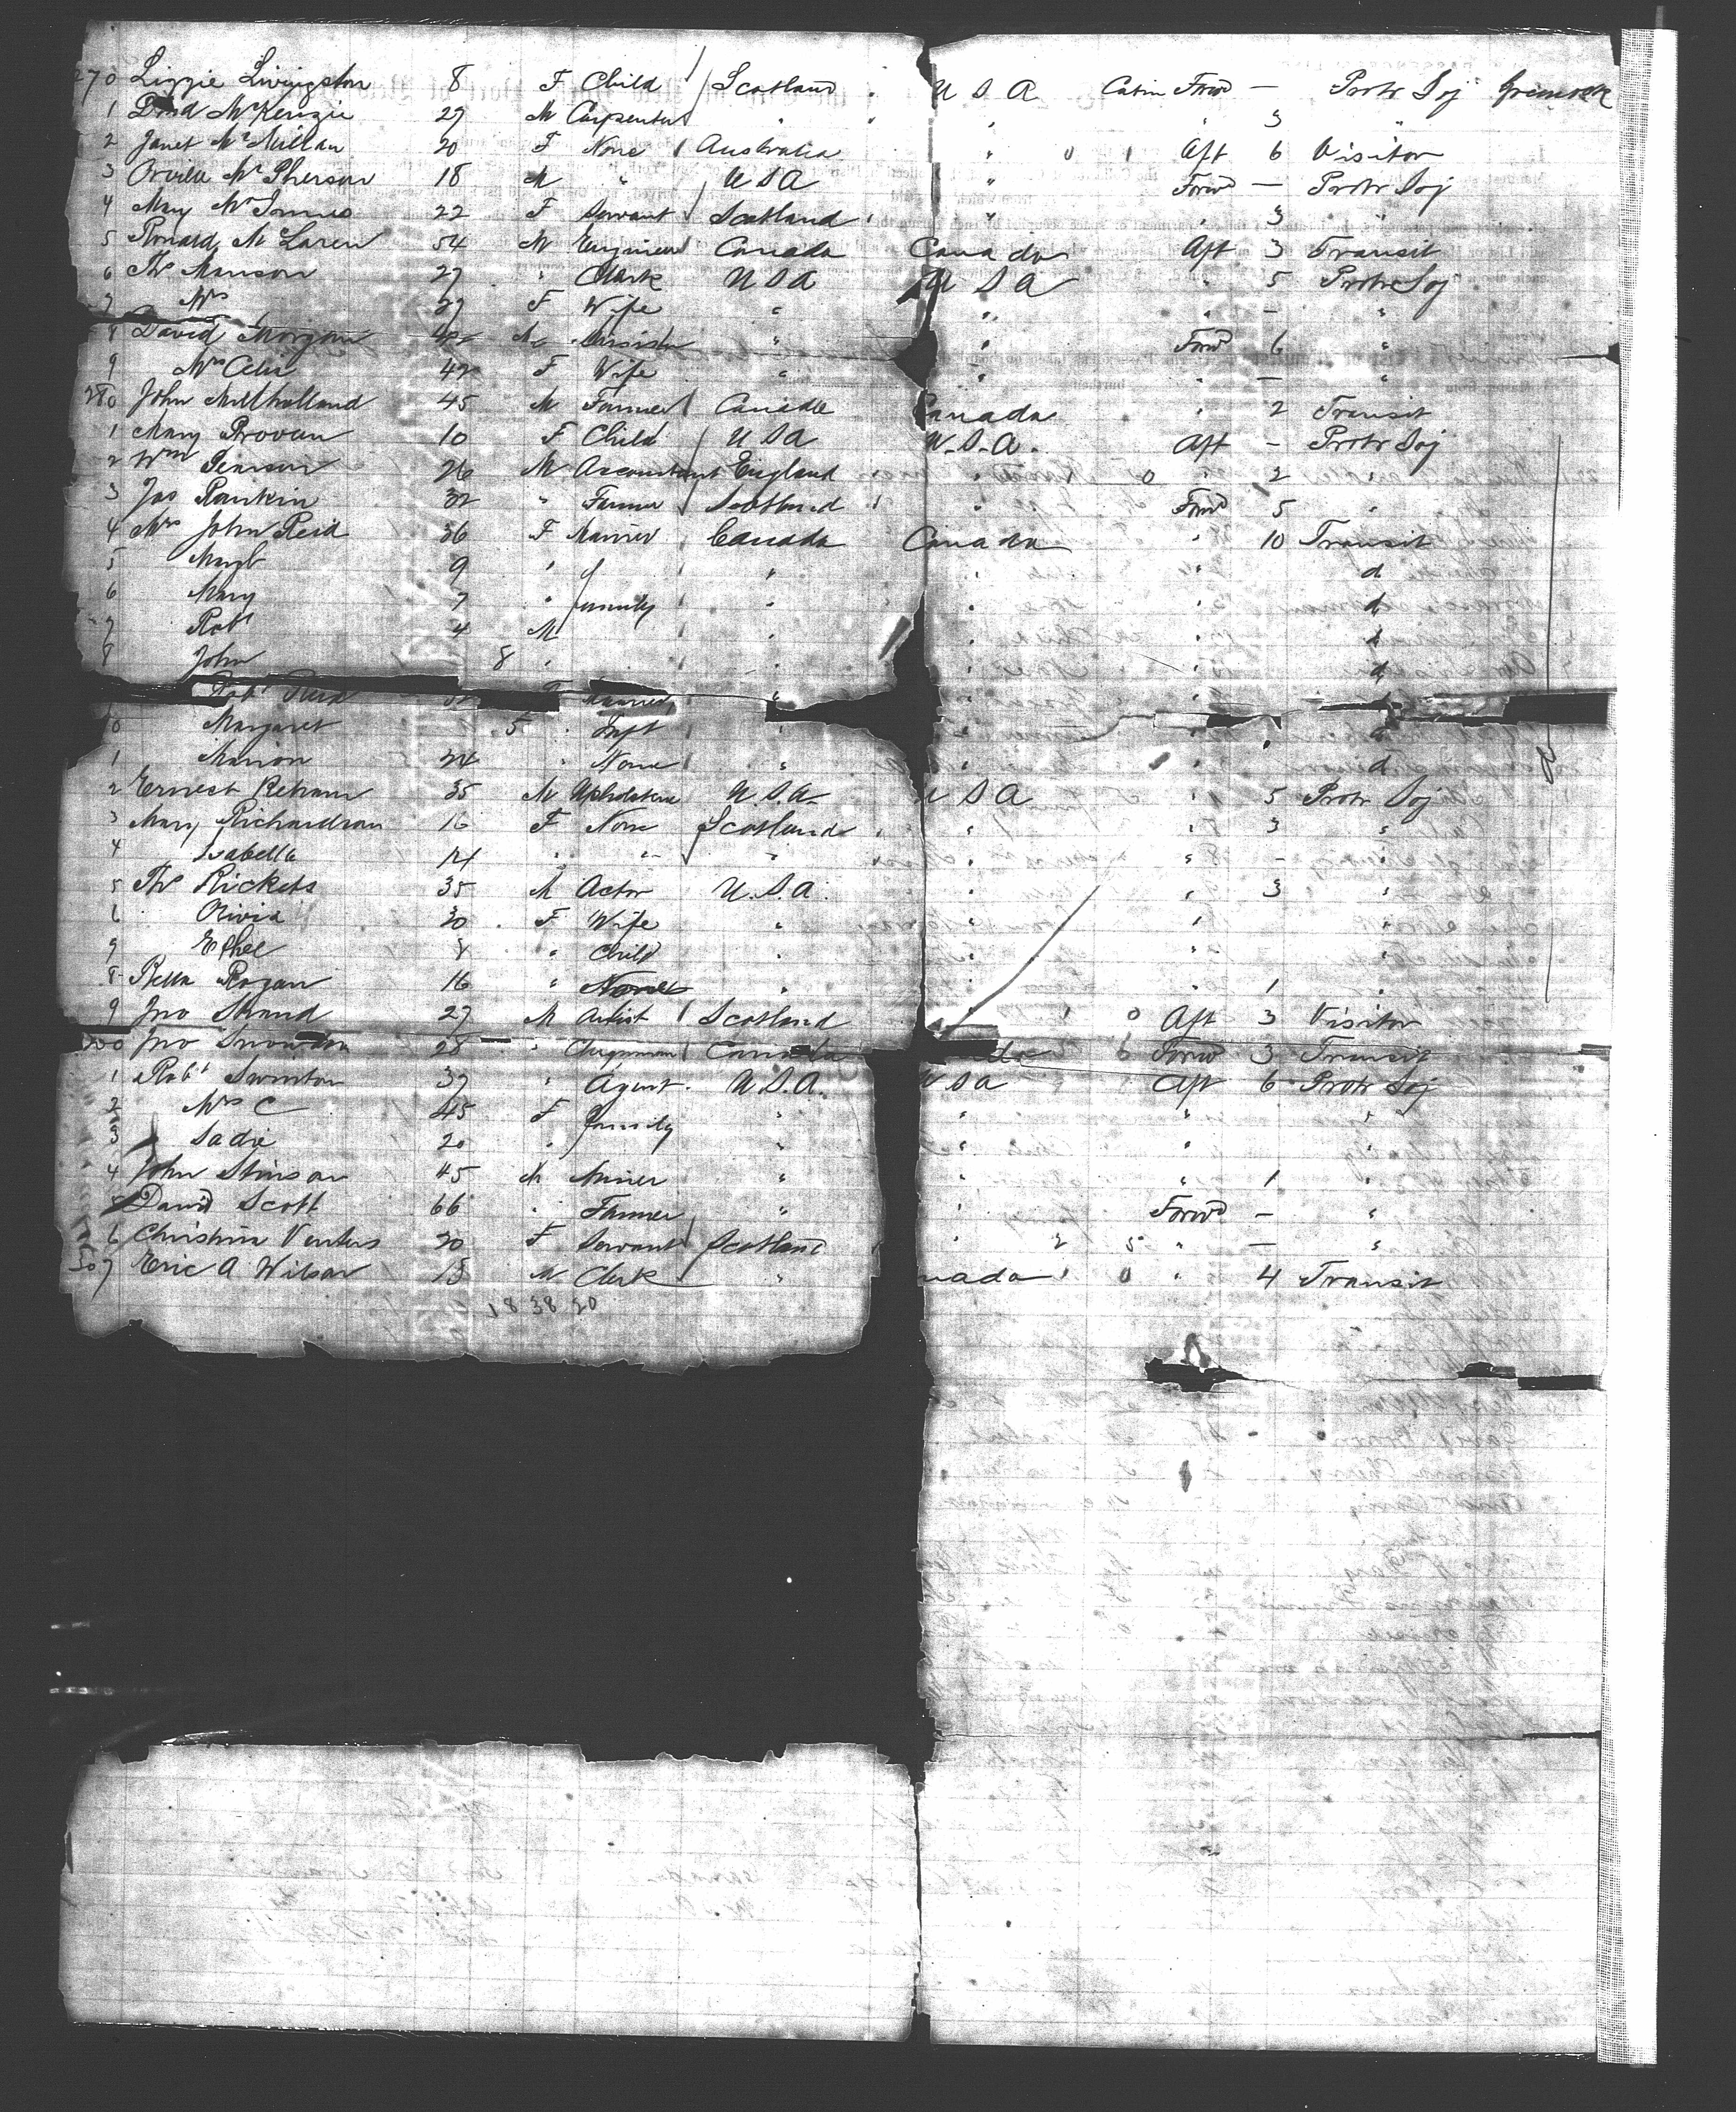 270 Lizzie Livingston 8 F Child Scotland U S A Cabin Forwd — Protr Soj Greenock
1 David McKenzie 27 M Carpenter " " " 3 "
2 Janet McMillan 20 F None Australia " 0 1 Aft 6 Visitor
3 Orville McPherson 18 M " U S A " Forwd — Protr Soj
4 Mary McInnes 22 F Servant Scotland " " 3 "
5 Ronald McLaren 54 M Engineer Canada Canada Aft 3 Transit
6 Thos Manson 27 " Clerk U S A U S A " 5 Protr Soj
7 Mrs 27 F Wife " " " — "
8 David Morgan M " " Forwd 6 "
9 Mrs Celia 42 F Wife " " " — "
280 John Millholland 45 M Farmer Canada Canada " 2 Transit
1 Mary Provan 10 F Child U S A U.S.A. Aft — Protr Soj
2 Wm Pearson 26 M Accountant England " 0 " 2 "
3 Jas Rankin 32 " Farmer Scotland " Forwd 5 "
4 Mrs John Reid 36 F Married Canada Canada " 10 Transit
5 Margt 9 " " " " d
6 Mary 7 " family " " " d
7 Robt 4 M " " " d
8 John 8 " " " " d
Robt Reid F Married "
0 Margaret 5 " Inft " " " d
1 Marion 24 " None " " " d
2 Ernest 35 M Upholsterer U.S.A. U S A " 5 Protr Soj
3 Mary Richardson 16 F None Scotland " " 3 "
4 Isabella 14 " " " " " — "
5 Thos Rickets 35 M Actor U.S.A. " " 3 "
6 Olivia 30 F Wife " " " "
7 Ethel 8 " Child " " " "
8 Bella Rogan 16 " None " " " 1 "
9 Jno Strand 27 M Artist Scotland " 1 0 Aft 3 Visitor
300 Jno Snowdon 28 " Clergyman Canada ada 6 Forwd 3 Transit
1 Robt Swinton 37 " Agent U.S.A. U S A Aft 6 Protr Soj
2 Mrs C 45 F family " " " "
3 Sadie 20 " " " " "
4 John Stinson 45 M Miner " " " 1 "
5 David Scott 66 " Farmer " " Forwd — "
6 Christina Venters 20 F Servant Scotland " 2 5 " — "
307 Eric A Wilson 18 M Clerk " nada 0 " 4 Transit
18 38 20